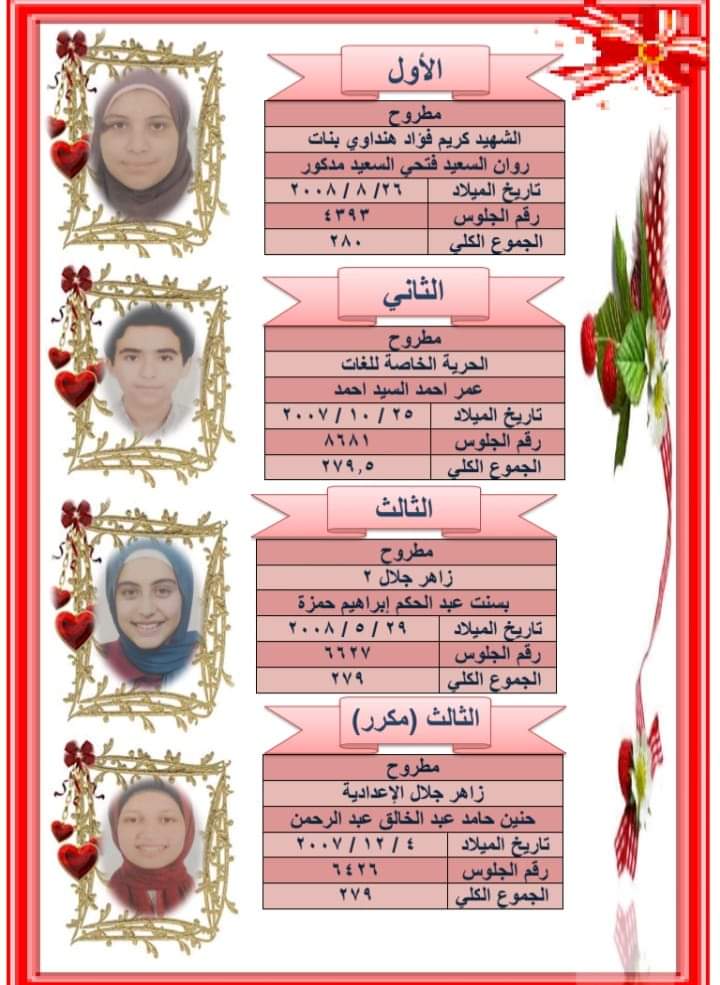 الأول
مطروح
الشهيد كريم فؤاد هنداوي بنات
روان السعيد فتحي السعيد مدكور
تاريخ الميلاد ٢٦/ ٨ / ٢٠٠٨
رقم الجلوس ٤٣٩٣
الجموع الكلي ٢٨٠
الثاني
مطروح
الحرية الخاصة للغات
عمر احمد السيد احمد
تاريخ الميلاد ٢٥ / ١٠ / ٢٠٠٧
رقم الجلوس ٨٦٨١
الجموع الكلي ٢٧٩,٥
الثالث
مطروح
زاهر جلال ٢
بسنت عبد الحكم إبراهيم حمزة
تاريخ الميلاد ٢٩ / ٥ / ٢٠٠٨
رقم الجلوس ٦٦٢٧
الجموع الكلي ٢٧٩
الثالث (مكرر)
مطروح
زاهر جلال الإعدادية
حنين حامد عبد الخالق عبد الرحمن
تاريخ الميلاد ٤ / ١٢ / ٢٠٠٧
رقم الجلوس ٦٤٢٦
الجموع الكلي ٢٧٩